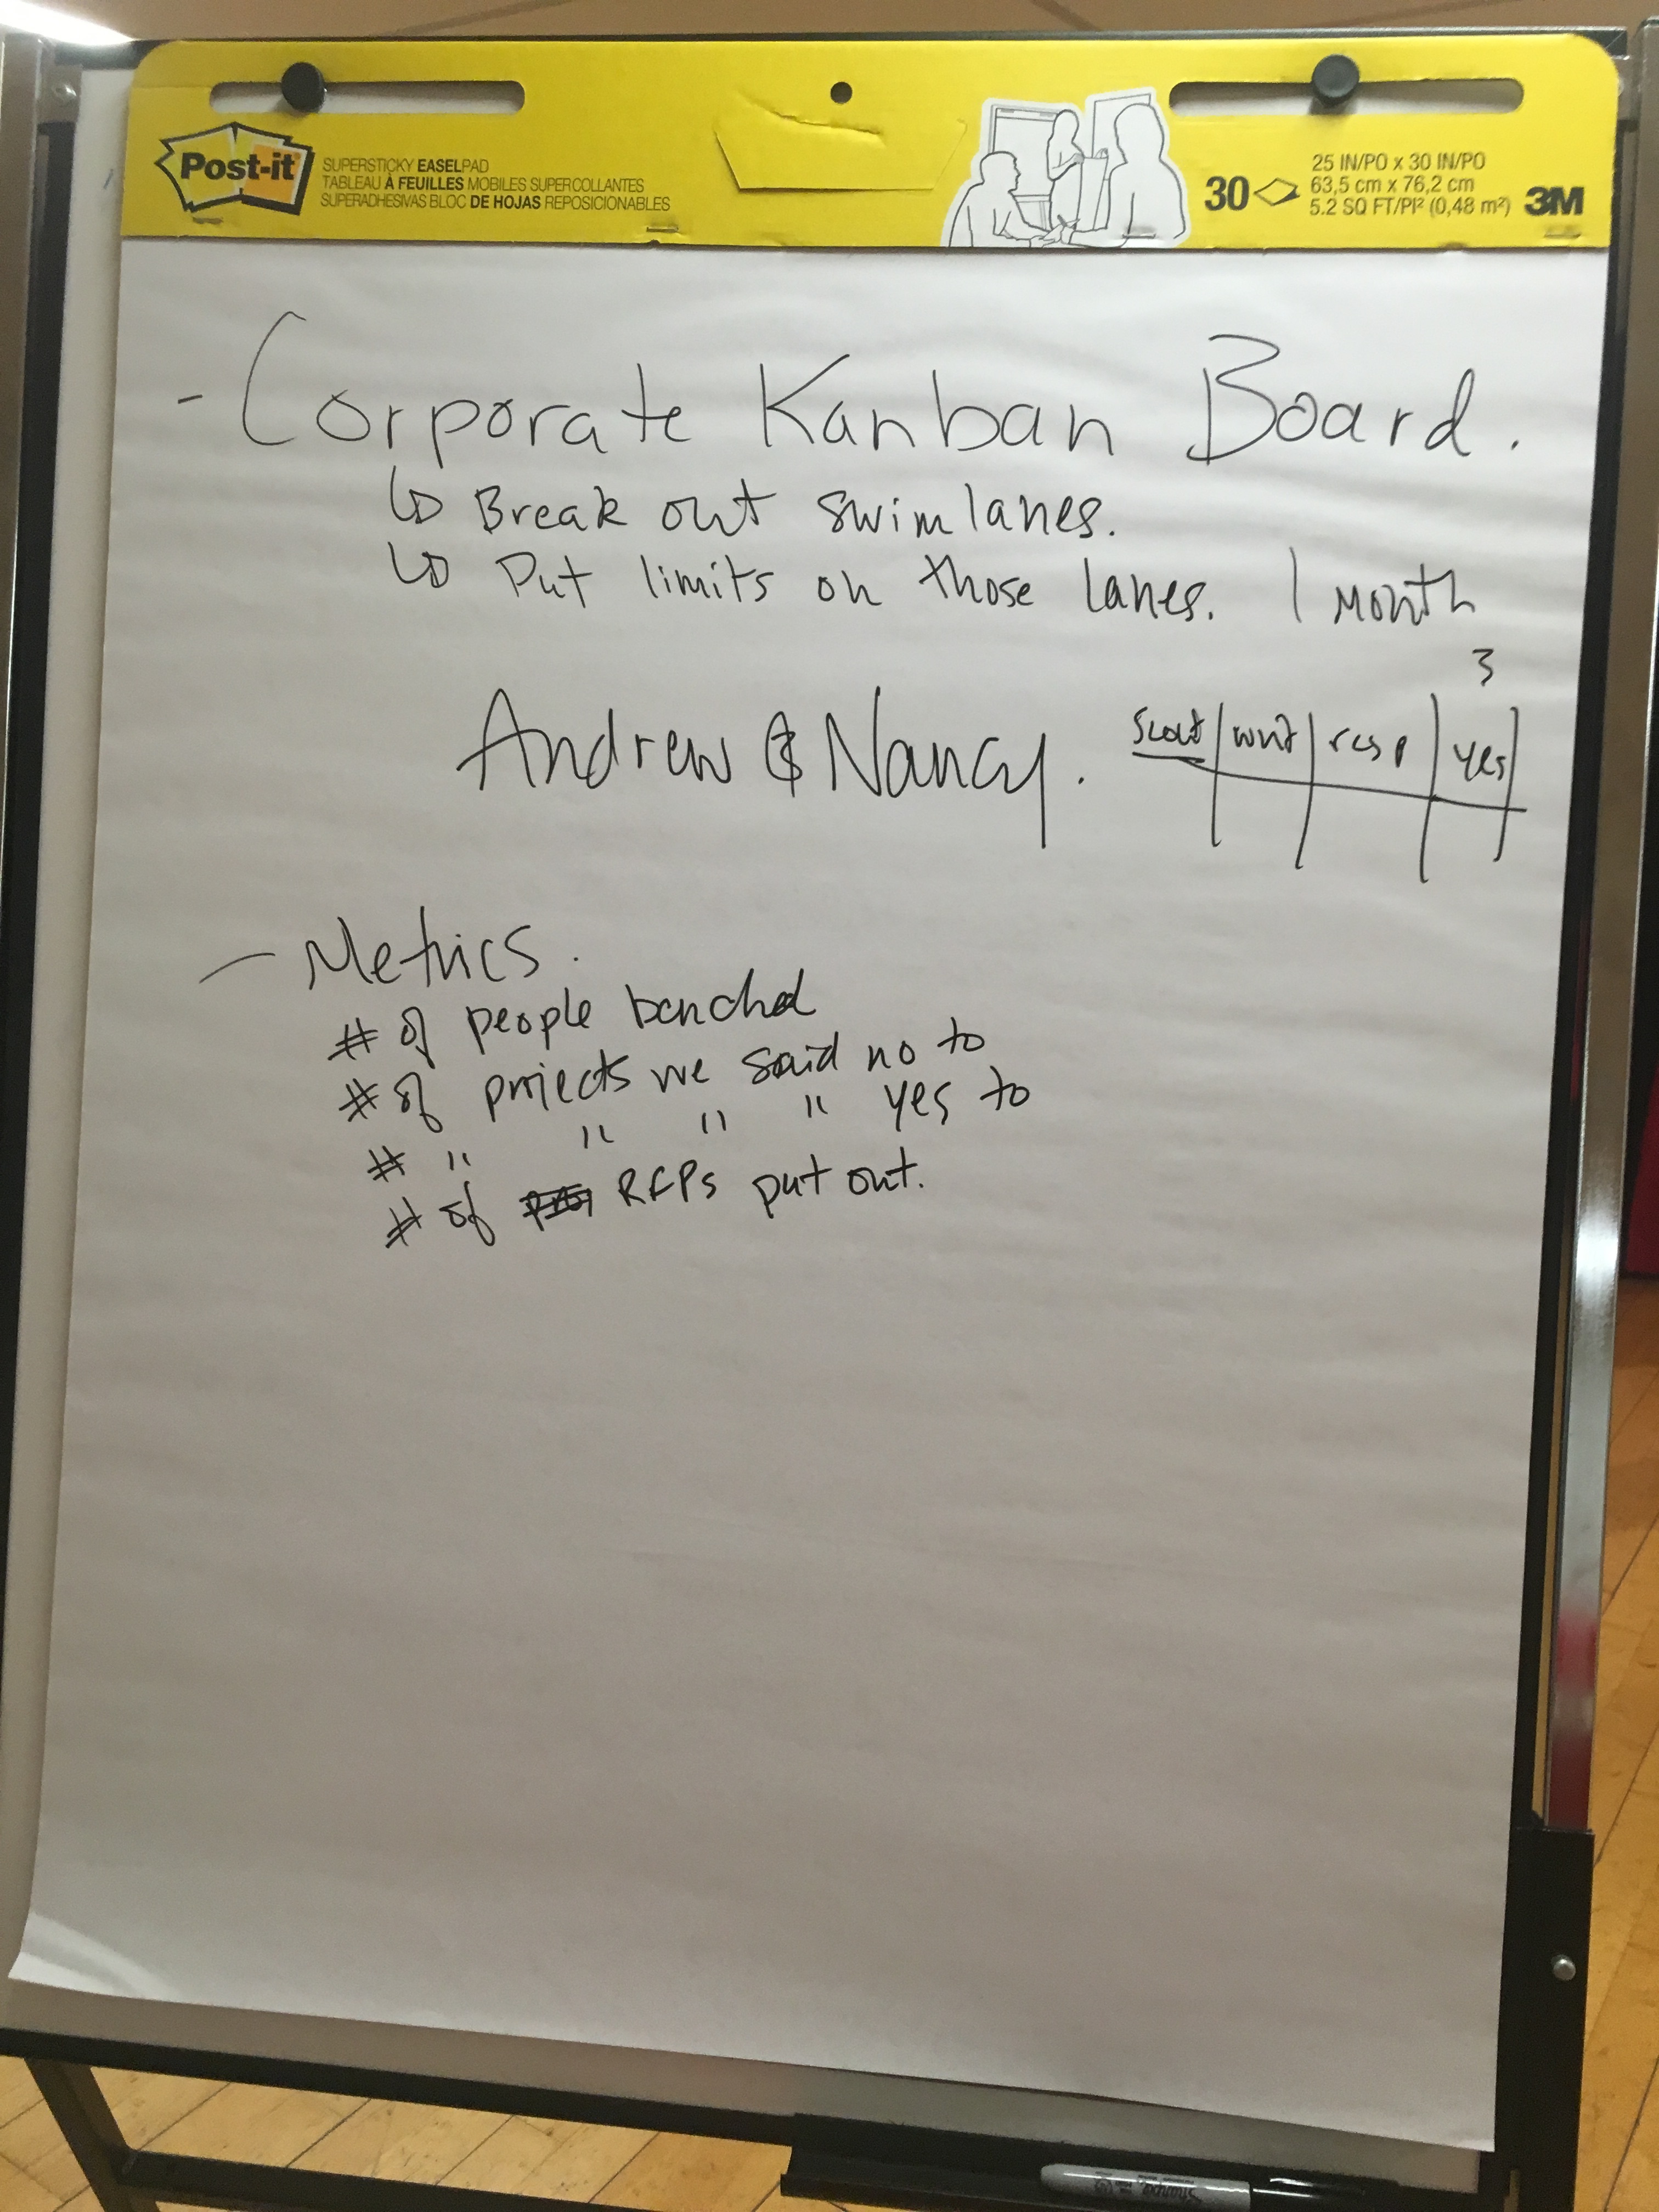 Post-it
SUPERSTICKY EASELPAD
TABLEAU À FEUILLES MOBILES SUPERCOLLANTES
SUPERADHESIVAS BLOC DE HOJAS REPOSICIONABLES
30
25 IN/PO x 30 IN/PO
63,5 cm x 76,2 cm
5.2 SQ FT/PI² (0,48 m²)
3M
- Corporate Kanban Board.
↳ Break out swimlanes.
↳ Put limits on those lanes. 1 month
3
Andrew & Nancy.
scout | writ | resp | yes |
- Metrics.
# of people benched
# of projects we said no to
# " " " " yes to
# of RFPs put out.
Sharpie